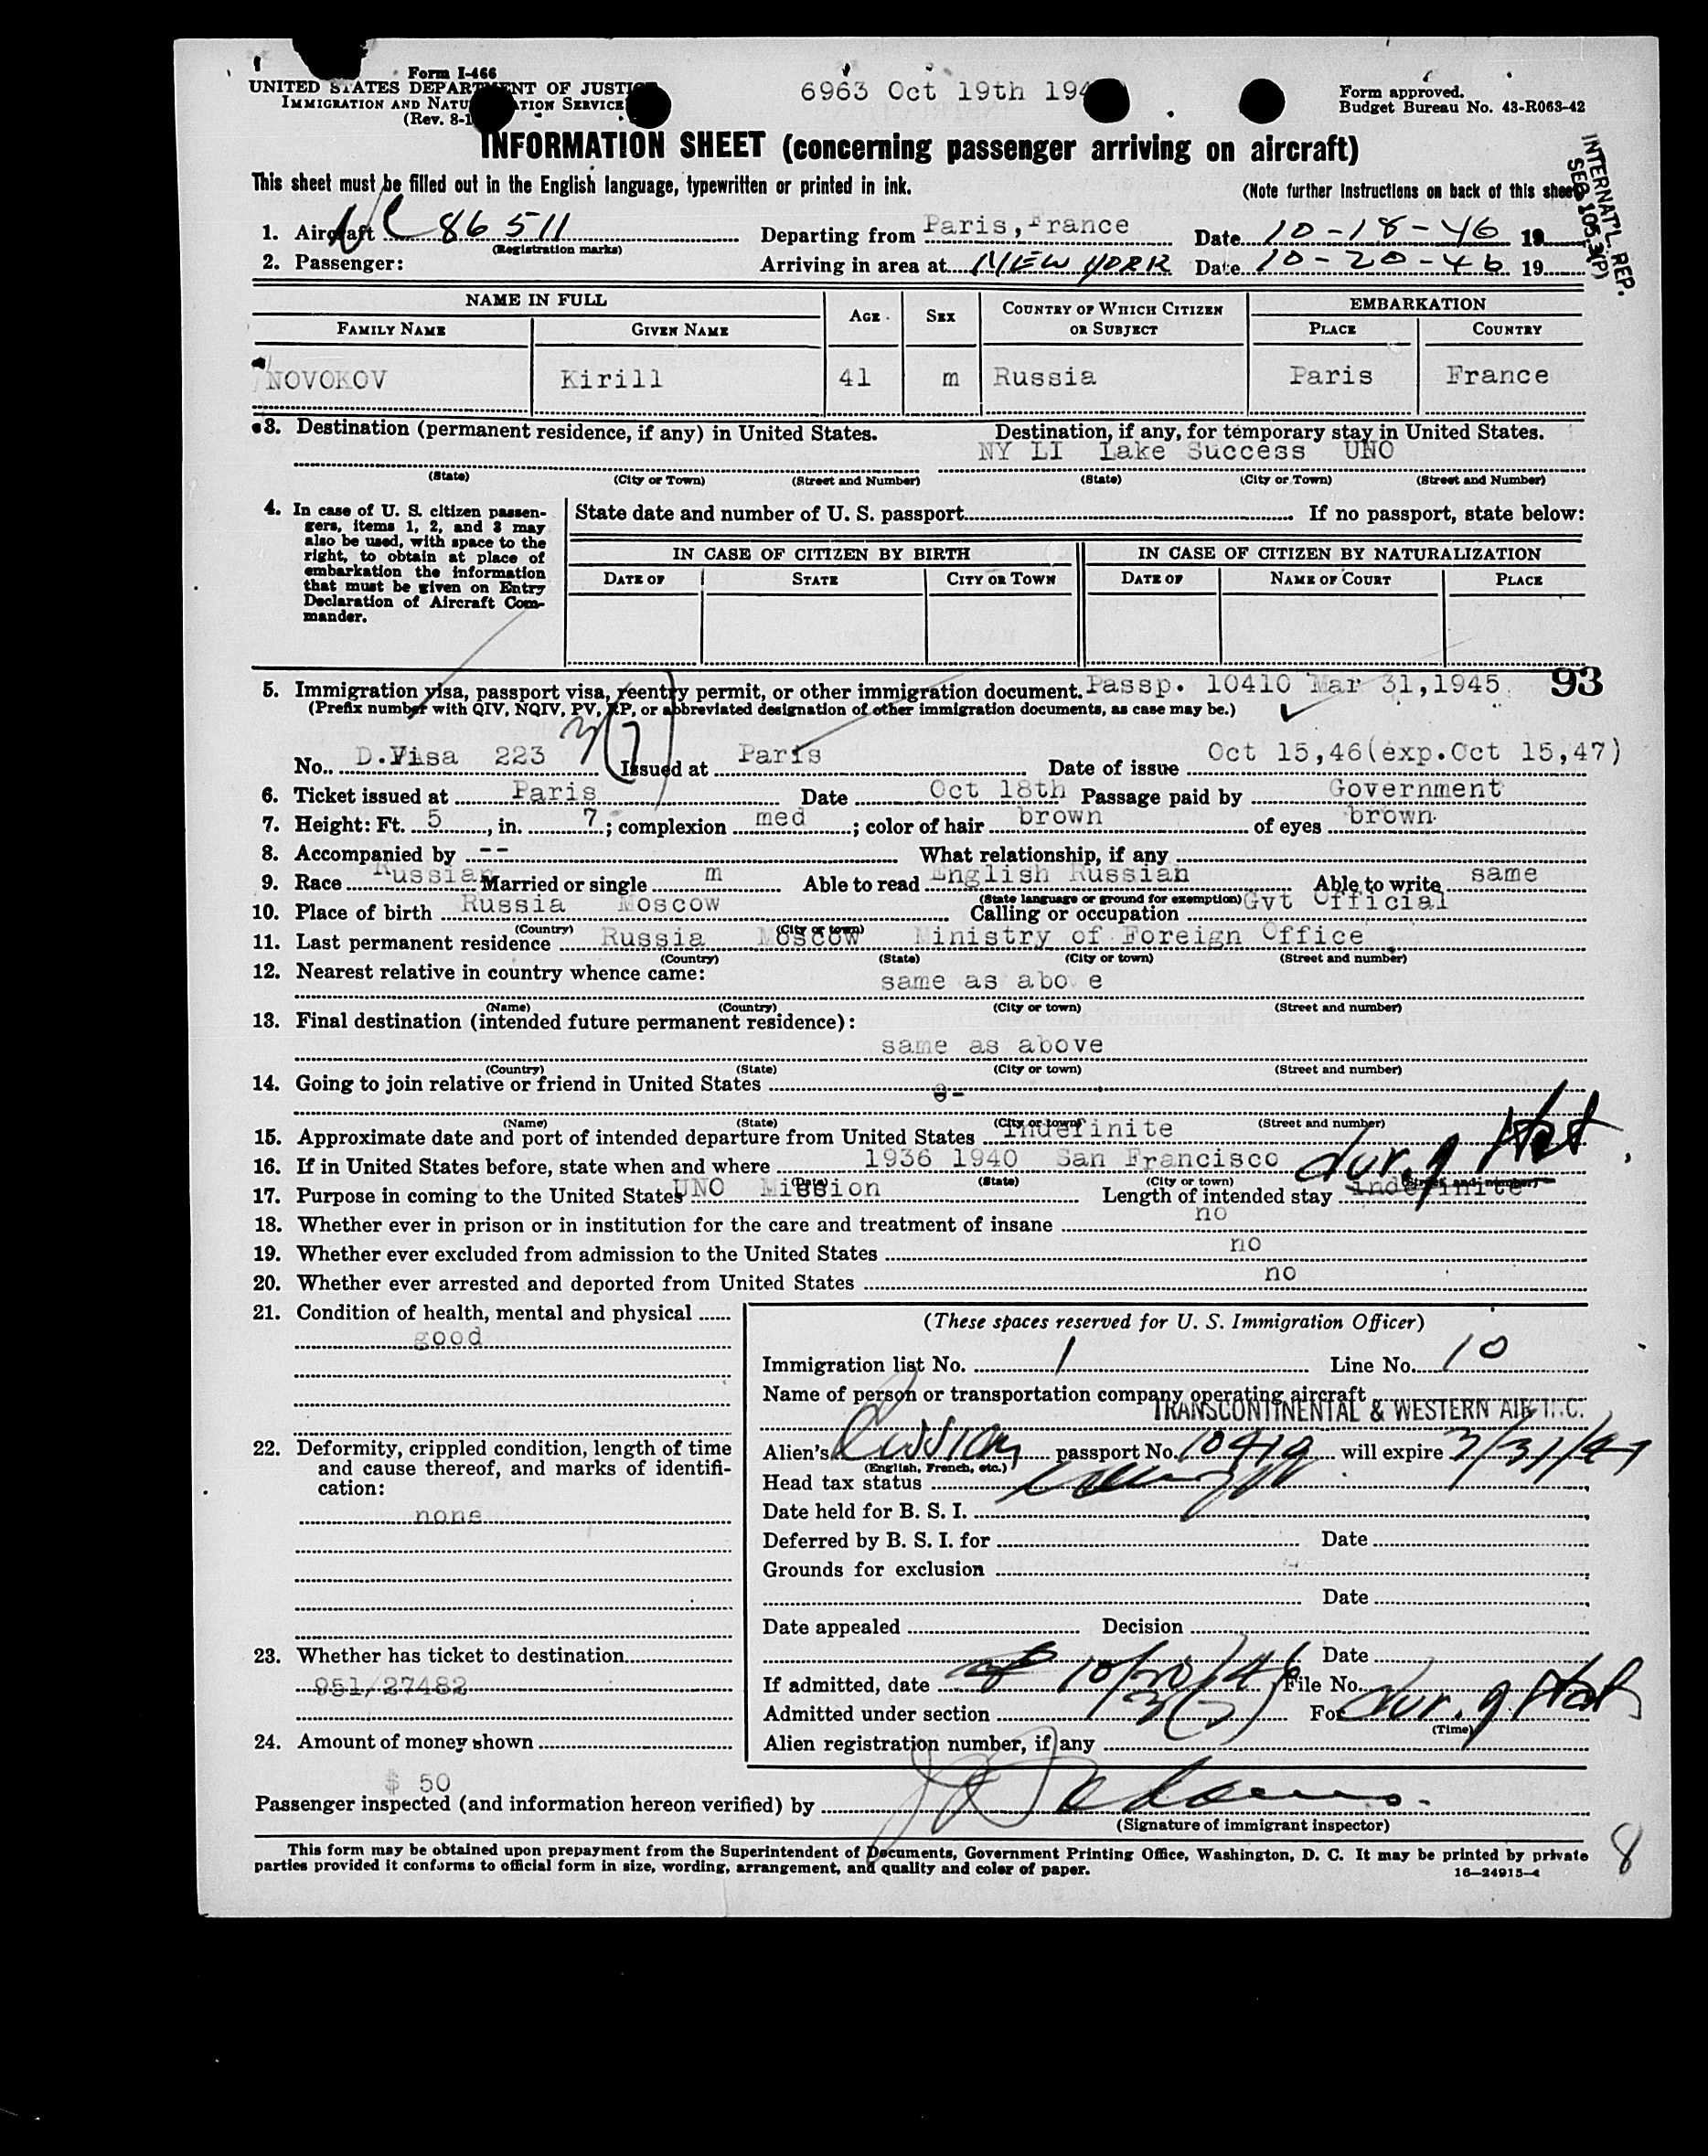 Form I-466
UNITED STATES DEPARTMENT OF JUSTICE
IMMIGRATION AND NATURALIZATION SERVICE
(Rev. 8-1
6963 Oct 19th 194
Form approved.
Budget Bureau No. 43-R063-42
INFORMATION SHEET (concerning passenger arriving on aircraft)
This sheet must be filled out in the English language, typewritten or printed in ink.
(Note further instructions on back of this sheet)
INTERNAT'L. REP.
SEC 105.3(P)
1. Aircraft NC 86511 Departing from Paris, France Date 10-18-46 19
(Registration marks)
2. Passenger: Arriving in area at NEW YORK Date 10-20-46 19
NAME IN FULL
FAMILY NAME GIVEN NAME AGE SEX COUNTRY OF WHICH CITIZEN OR SUBJECT EMBARKATION PLACE COUNTRY
NOVOKOV Kirill 41 m Russia Paris France
3. Destination (permanent residence, if any) in United States. Destination, if any, for temporary stay in United States.
NY LI Lake Success UNO
(State) (City or Town) (Street and Number) (State) (City or Town) (Street and Number)
4. In case of U. S. citizen passen-
gers, items 1, 2, and 3 may
also be used, with space to the
right, to obtain at place of
embarkation the information
that must be given on Entry
Declaration of Aircraft Com-
mander.
State date and number of U. S. passport If no passport, state below:
IN CASE OF CITIZEN BY BIRTH IN CASE OF CITIZEN BY NATURALIZATION
DATE OF STATE CITY OR TOWN DATE OF NAME OF COURT PLACE
5. Immigration visa, passport visa, reentry permit, or other immigration document. Passp. 10410 Mar 31,1945 93
(Prefix number with QIV, NQIV, PV, RP, or abbreviated designation of other immigration documents, as case may be.)
3(7)
No. D.Visa 223 Issued at Paris Date of issue Oct 15,46(exp.Oct 15,47)
6. Ticket issued at Paris Date Oct 18th Passage paid by Government
7. Height: Ft. 5, in. 7; complexion med; color of hair brown of eyes brown
8. Accompanied by -- What relationship, if any
9. Race Russian Married or single m Able to read English Russian Able to write same
(State language or ground for exemption)
10. Place of birth Russia Moscow Calling or occupation Gvt Official
(Country) (City or town)
11. Last permanent residence Russia Moscow Ministry of Foreign Office
(Country) (State) (City or town) (Street and number)
12. Nearest relative in country whence came: same as above
(Name) (Country) (City or town) (Street and number)
13. Final destination (intended future permanent residence):
same as above
(Country) (State) (City or town) (Street and number)
14. Going to join relative or friend in United States
(Name) (State) (City or town) (Street and number)
15. Approximate date and port of intended departure from United States Indefinite
16. If in United States before, state when and where 1936 1940 San Francisco
dur. of stat
(Date) (State) (City or town) (Street and number)
17. Purpose in coming to the United States UNO Mission Length of intended stay indefinite
18. Whether ever in prison or in institution for the care and treatment of insane no
19. Whether ever excluded from admission to the United States no
20. Whether ever arrested and deported from United States no
21. Condition of health, mental and physical
good
22. Deformity, crippled condition, length of time
and cause thereof, and marks of identifi-
cation:
none
23. Whether has ticket to destination
951/27482
24. Amount of money shown
$ 50
(These spaces reserved for U. S. Immigration Officer)
Immigration list No. 1 Line No. 10
Name of person or transportation company operating aircraft
TRANSCONTINENTAL & WESTERN AIR INC.
Alien's Russian passport No. 10410 will expire 3/31/47
(English, French, etc.)
Head tax status
Date held for B. S. I.
Deferred by B. S. I. for Date
Grounds for exclusion
Date
Date appealed Decision
Date
If admitted, date 10/20/46 File No.
Admitted under section 3(7) For dur. of stat
(Time)
Alien registration number, if any
Passenger inspected (and information hereon verified) by
(Signature of immigrant inspector)
This form may be obtained upon prepayment from the Superintendent of Documents, Government Printing Office, Washington, D. C. It may be printed by private
parties provided it conforms to official form in size, wording, arrangement, and quality and color of paper.
16—24915-4
8